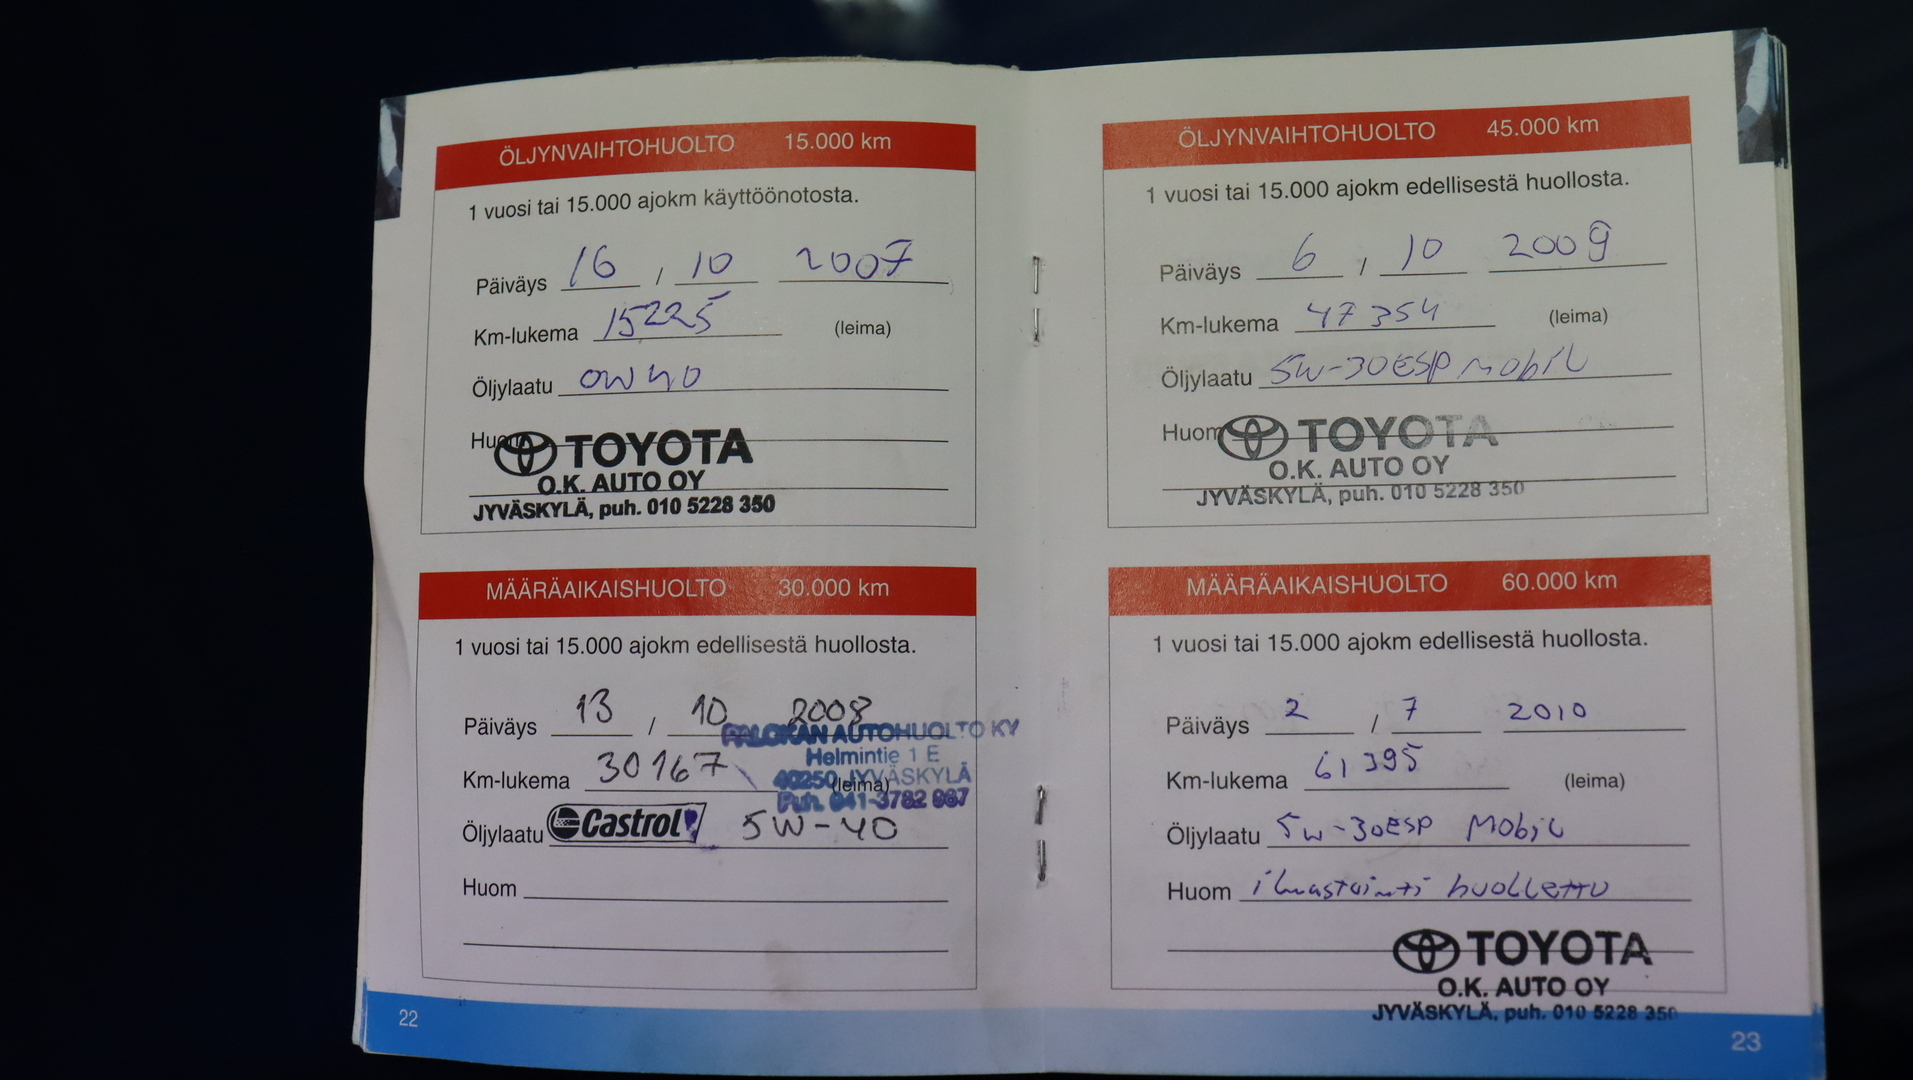 ÖLJYNVAIHTOHUOLTO 15.000 km
1 vuosi tai 15.000 ajokm käyttöönotosta.
Päiväys 16 / 10 2007
Km-lukema 15225 (leima)
Öljylaatu 0W40
Huom
TOYOTA
O.K. AUTO OY
JYVÄSKYLÄ, puh. 010 5228 350
MÄÄRÄAIKAISHUOLTO 30.000 km
1 vuosi tai 15.000 ajokm edellisestä huollosta.
Päiväys 13 / 10 2008
PALOKAN AUTOHUOLTO KY
Helmintie 1 E
Km-lukema 30167 (leima)
40250 JYVÄSKYLÄ
Puh. 041-3782 967
Öljylaatu Castrol 5W-40
Huom
22
ÖLJYNVAIHTOHUOLTO 45.000 km
1 vuosi tai 15.000 ajokm edellisestä huollosta.
Päiväys 6 / 10 2009
Km-lukema 47354 (leima)
Öljylaatu 5W-30ESP Mobil
Huom
TOYOTA
O.K. AUTO OY
JYVÄSKYLÄ, puh. 010 5228 350
MÄÄRÄAIKAISHUOLTO 60.000 km
1 vuosi tai 15.000 ajokm edellisestä huollosta.
Päiväys 2 / 7 2010
Km-lukema 61395 (leima)
Öljylaatu 5W-30ESP Mobil
Huom ilmastointi huollettu
TOYOTA
O.K. AUTO OY
JYVÄSKYLÄ, puh. 010 5228 350
23